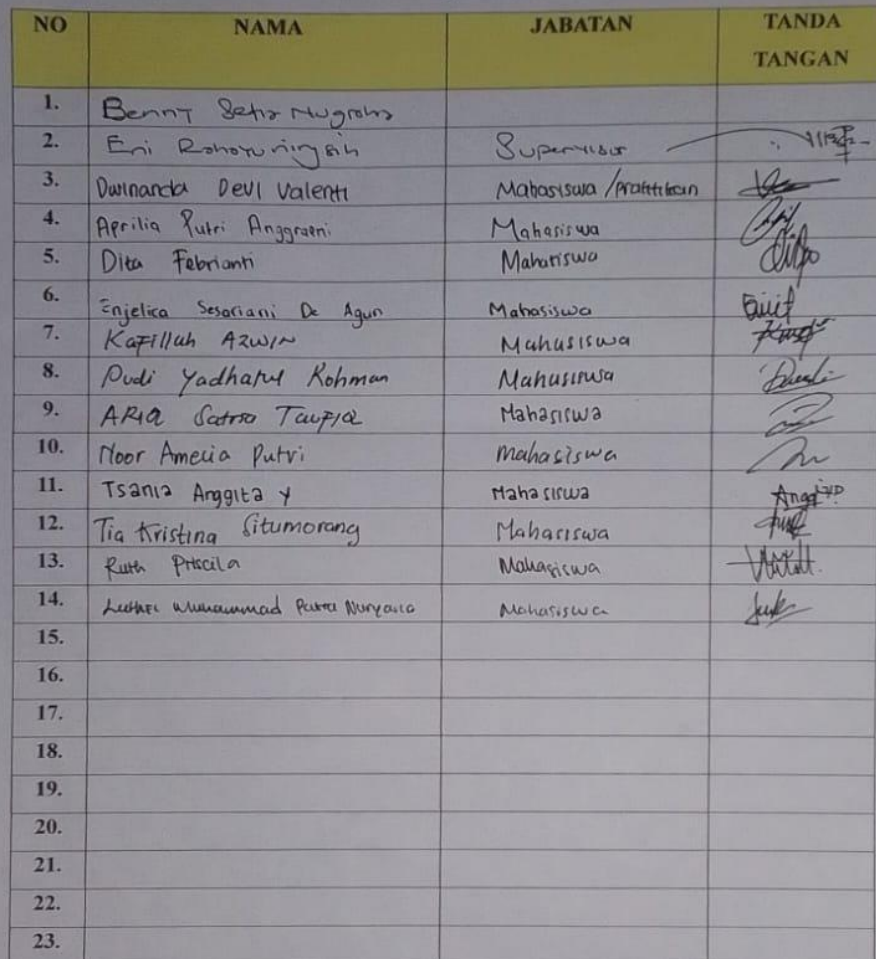 NO NAMA JABATAN TANDA TANGAN
1. Benny Setia Nugroho
2. Eni Rahayuningsih Supervisor
3. Dwinanda Devi Valenti Mahasiswa / praktikan
4. Aprilia Putri Anggraeni Mahasiswa
5. Dita Febrianti Mahasiswa
6. Enjelica Sesariani De Agun Mahasiswa
7. Kafillah AZWIN Mahasiswa
8. Dudi Yadhatul Rohman Mahasiswa
9. ARIA Satria TAUFIQ Mahasiswa
10. Noor Amelia Putri mahasiswa
11. Tsania Anggita Y Mahasiswa
12. Tia Kristina Situmorang Mahasiswa
13. Ruth Priscila Mahasiswa
14. Muhammad Putra Mahasiswa
15.
16.
17.
18.
19.
20.
21.
22.
23.